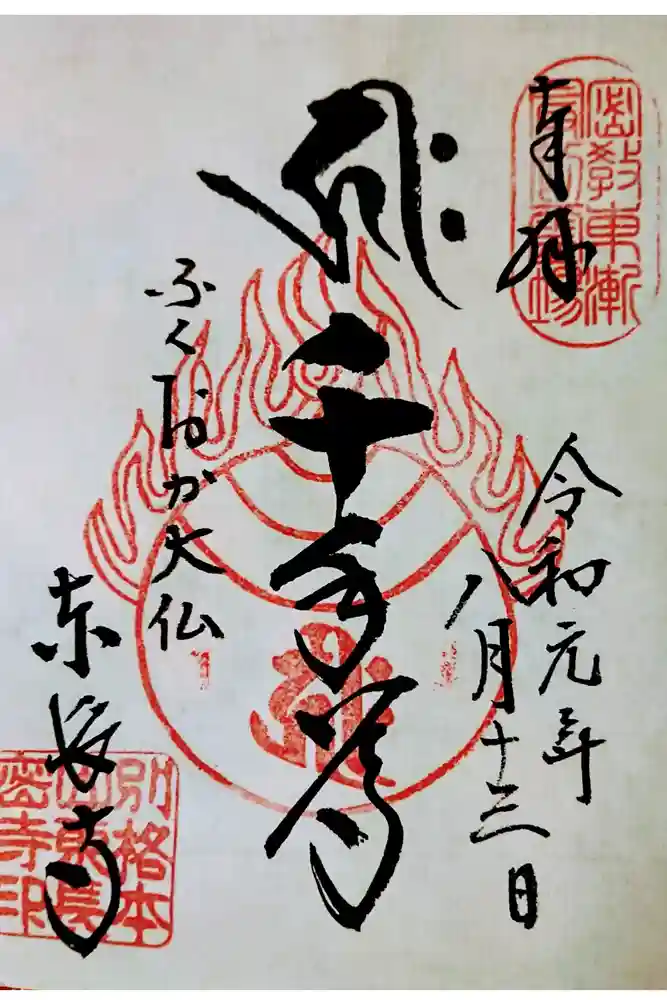 奉拝
密教東漸
令和元年
八月十三日
ह्रीः
千手尊
ふくおか大仏
東長寺
別格本
山東長
密寺印